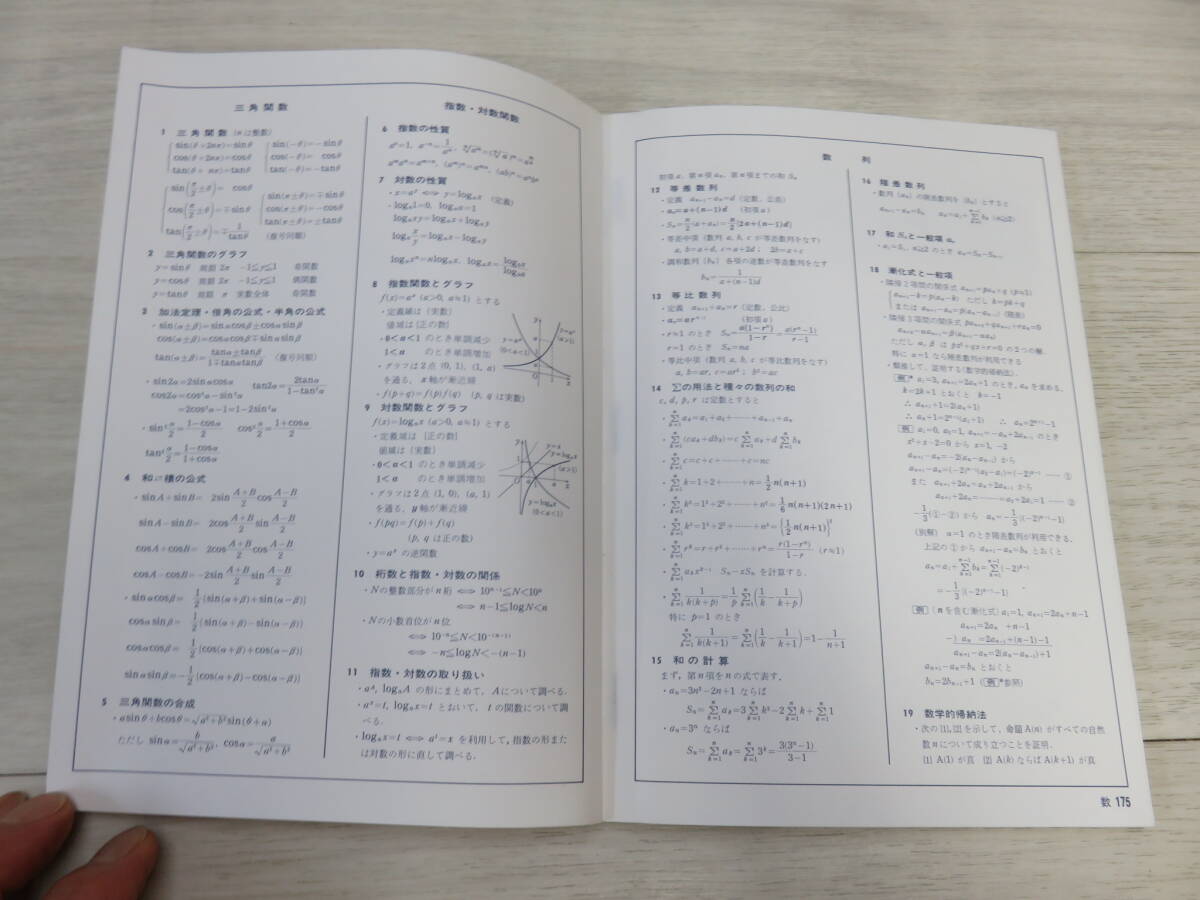 三角関数
1 三角関数 (nは整数)
sin(θ+2nπ)=sinθ
cos(θ+2nπ)=cosθ
tan(θ+ nπ)=tanθ
sin(−θ)=−sinθ
cos(−θ)= cosθ
tan(−θ)=−tanθ
sin(π/2±θ)= cosθ
cos(π/2±θ)=∓sinθ
tan(π/2±θ)=∓1/tanθ
sin(π±θ)=∓sinθ
cos(π±θ)=−cosθ
tan(π±θ)=±tanθ
(複号同順)
2 三角関数のグラフ
y=sinθ 周期 2π −1≦y≦1 奇関数
y=cosθ 周期 2π −1≦y≦1 偶関数
y=tanθ 周期 π 実数全体 奇関数
3 加法定理・倍角の公式・半角の公式
・sin(α±β)=sinαcosβ±cosαsinβ
cos(α±β)=cosαcosβ∓sinαsinβ
tan(α±β)=(tanα±tanβ)/(1∓tanαtanβ) (複号同順)
・sin2α=2sinαcosα tan2α=2tanα/(1−tan²α)
cos2α=cos²α−sin²α
=2cos²α−1=1−2sin²α
・sin²α/2=(1−cosα)/2 cos²α/2=(1+cosα)/2
tan²α/2=(1−cosα)/(1+cosα)
4 和⇄積の公式
・sinA+sinB= 2sin (A+B)/2 cos (A−B)/2
sinA−sinB= 2cos (A+B)/2 sin (A−B)/2
cosA+cosB= 2cos (A+B)/2 cos (A−B)/2
cosA−cosB=−2sin (A+B)/2 sin (A−B)/2
・sinαcosβ= 1/2{sin(α+β)+sin(α−β)}
cosαsinβ= 1/2{sin(α+β)−sin(α−β)}
cosαcosβ= 1/2{cos(α+β)+cos(α−β)}
sinαsinβ=−1/2{cos(α+β)−cos(α−β)}
5 三角関数の合成
・asinθ+bcosθ=√(a²+b²)sin(θ+α)
ただし sinα=b/√(a²+b²), cosα=a/√(a²+b²)
指数・対数関数
6 指数の性質
7 対数の性質
・x=aʸ ⟺ y=logₐx (定義)
・logₐ1=0, logₐa=1
logₐxy=logₐx+logₐy
logₐx/y=logₐx−logₐy
logₐxⁿ=nlogₐx,
8 指数関数とグラフ
f(x)=aˣ (a>0, a≠1) とする
・定義域は {実数}
値域は {正の数}
・0<a<1 のとき単調減少
1<a のとき単調増加
・グラフは2点 (0, 1), (1, a)
を通る. x軸が漸近線
・f(p+q)=f(p)f(q) (p, q は実数)
9 対数関数とグラフ
f(x)=logₐx (a>0, a≠1) とする
・定義域は {正の数}
値域は {実数}
・0<a<1 のとき単調減少
1<a のとき単調増加
・グラフは2点 (1, 0), (a, 1)
を通る. y軸が漸近線
・f(pq)=f(p)+f(q)
(p, q は正の数)
・y=aˣ の逆関数
10 桁数と指数・対数の関係
・Nの整数部分がn桁 ⟺ 10ⁿ⁻¹≦N<10ⁿ
⟺ n−1≦logN<n
・Nの小数首位がn位
⟺ 10⁻ⁿ≦N<10⁻⁽ⁿ⁻¹⁾
⟺ −n≦logN<−(n−1)
11 指数・対数の取り扱い
・aᴬ, logₐA の形にまとめて, Aについて調べる.
・aˣ=t, logₐx=t とおいて, tの関数について調
べる.
・logₐx=t ⟺ aᵗ=x を利用して, 指数の形また
は対数の形に直して調べる.
数列
初項a, 第n項aₙ, 第n項までの和 Sₙ
12 等差数列
・定義 aₙ₊₁−aₙ=d (定数, 公差)
・aₙ=a+(n−1)d (初項a)
・Sₙ=n/2(a+aₙ)=n/2{2a+(n−1)d}
・等差中項 (数列 a, b, c が等差数列をなす)
a, b=a+d, c=a+2d; 2b=a+c
・調和数列{bₙ} 各項の逆数が等差数列をなす
bₙ=1/(a+(n−1)d)
13 等比数列
・定義 aₙ₊₁÷aₙ=r (定数, 公比)
・aₙ=arⁿ⁻¹ (初項a)
・r≠1 のとき Sₙ=a(1−rⁿ)/(1−r)=a(rⁿ−1)/(r−1)
r=1 のとき Sₙ=na
・等比中項 (数列 a, b, c が等比数列をなす)
a, b=ar, c=ar²; b²=ac
14 Σの用法と種々の数列の和
c, d, p, r は定数とすると
・Σaₖ=a₁+a₂+……+aₙ₋₁+aₙ
・Σ(caₖ+dbₖ)=cΣaₖ+dΣbₖ
・Σc=c+c+……+c=nc
・Σk=1+2+……+n=1/2 n(n+1)
・Σk²=1²+2²+……+n²=1/6 n(n+1)(2n+1)
・Σk³=1³+2³+……+n³={1/2 n(n+1)}²
・Σrᵏ=r+r²+……+rⁿ=r(1−rⁿ)/(1−r) (r≠1)
・Σaₖxᵏ⁻¹ Sₙ−xSₙ を計算する.
・Σ1/k(k+p)=1/p Σ(1/k−1/(k+p))
特に p=1のとき
Σ1/k(k+1)=Σ(1/k−1/(k+1))=1−1/(n+1)
15 和の計算
まず, 第n項をnの式で表す.
・aₙ=3n²−2n+1 ならば
Sₙ=Σaₖ=3Σk²−2Σk+Σ1
・aₙ=3ⁿ ならば
Sₙ=Σaₖ=Σ3ᵏ=3(3ⁿ−1)/(3−1)
16 階差数列
・数列{aₙ}の階差数列を{bₙ}とすると
aₙ₊₁−aₙ=bₙ aₙ=a₁+Σbₖ (n≧2)
17 和Sₙと一般項aₙ
・a₁=S₁, n≧2 のとき aₙ=Sₙ−Sₙ₋₁
18 漸化式と一般項
・隣接2項間の関係式 aₙ₊₁=paₙ+q (p≠1)
aₙ₊₁−k=p(aₙ−k) ただし k=pk+q
または aₙ₊₁−aₙ=p(aₙ−aₙ₋₁) (階差)
・隣接3項間の関係式 paₙ₊₂+qaₙ₊₁+raₙ=0
aₙ₊₂−αaₙ₊₁=β(aₙ₊₁−αaₙ)
ただし α, β は px²+qx+r=0 の2つの解.
特に α=1なら階差数列が利用できる
・類推して, 証明する(数学的帰納法).
例* a₁=3, aₙ₊₁=2aₙ+1 のとき, aₙ を求める.
k=2k+1 とおくと k=−1
∴ aₙ₊₁+1=2(aₙ+1)
∴ aₙ+1=2ⁿ⁻¹(a₁+1) ∴ aₙ=2ⁿ⁺¹−1
例 a₁=0, a₂=1, aₙ₊₂=−aₙ₊₁+2aₙ のとき
x²+x−2=0 から x=1, −2
aₙ₊₂−aₙ₊₁=−2(aₙ₊₁−aₙ) から
aₙ₊₁−aₙ=(−2)ⁿ⁻¹(a₂−a₁)=(−2)ⁿ⁻¹ …… ①
また aₙ₊₂+2aₙ₊₁=aₙ₊₁+2aₙ から
aₙ₊₁+2aₙ=………=a₂+2a₁=1 …… ②
−1/3(①−②) から aₙ=−1/3{(−2)ⁿ⁻¹−1}
(別解) α=1 のとき階差数列が利用できる.
上記の①から aₙ₊₁−aₙ=bₙ とおくと
aₙ=a₁+Σbₖ=Σ(−2)ᵏ⁻¹
=−1/3{(−2)ⁿ⁻¹−1}
例 (nを含む漸化式) a₁=1, aₙ₊₁=2aₙ+n−1
aₙ₊₁=2aₙ +n−1
−) aₙ =2aₙ₋₁+(n−1)−1
aₙ₊₁−aₙ=2(aₙ−aₙ₋₁)+1
aₙ₊₁−aₙ=bₙ とおくと
bₙ=2bₙ₋₁+1 (例*参照)
19 数学的帰納法
・次の[1], [2]を示して, 命題A(n)がすべての自然
数nについて成り立つことを証明.
[1] A(1)が真 [2] A(k)ならばA(k+1)が真
数 175